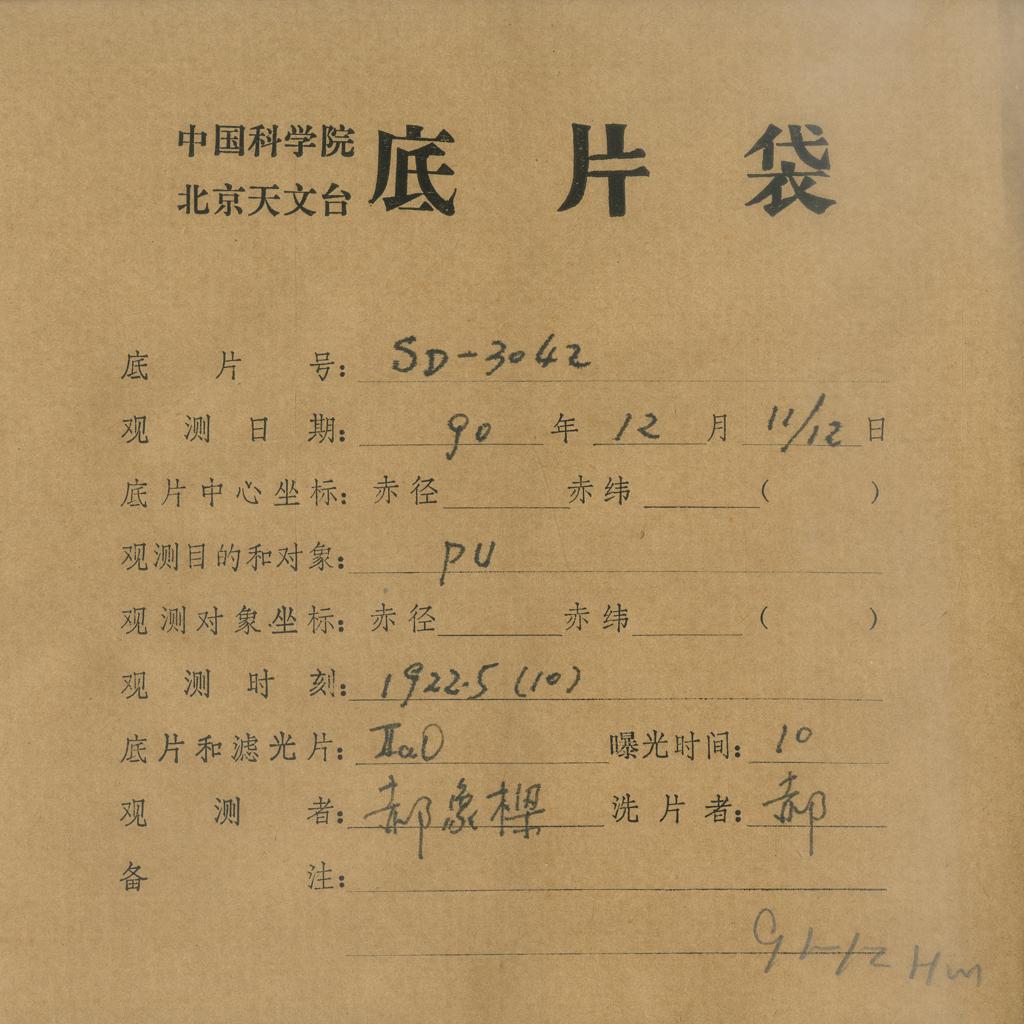 中国科学院
北京天文台
底片袋
底片号：SD-3042
观测日期：90年12月11/12日
底片中心坐标：赤径 赤纬 （ ）
观测目的和对象：PU
观测对象坐标：赤径 赤纬 （ ）
观测时刻：1922.5 (10)
底片和滤光片：IIaO 曝光时间：10
观测者：郝象樑 洗片者：郝
备注：